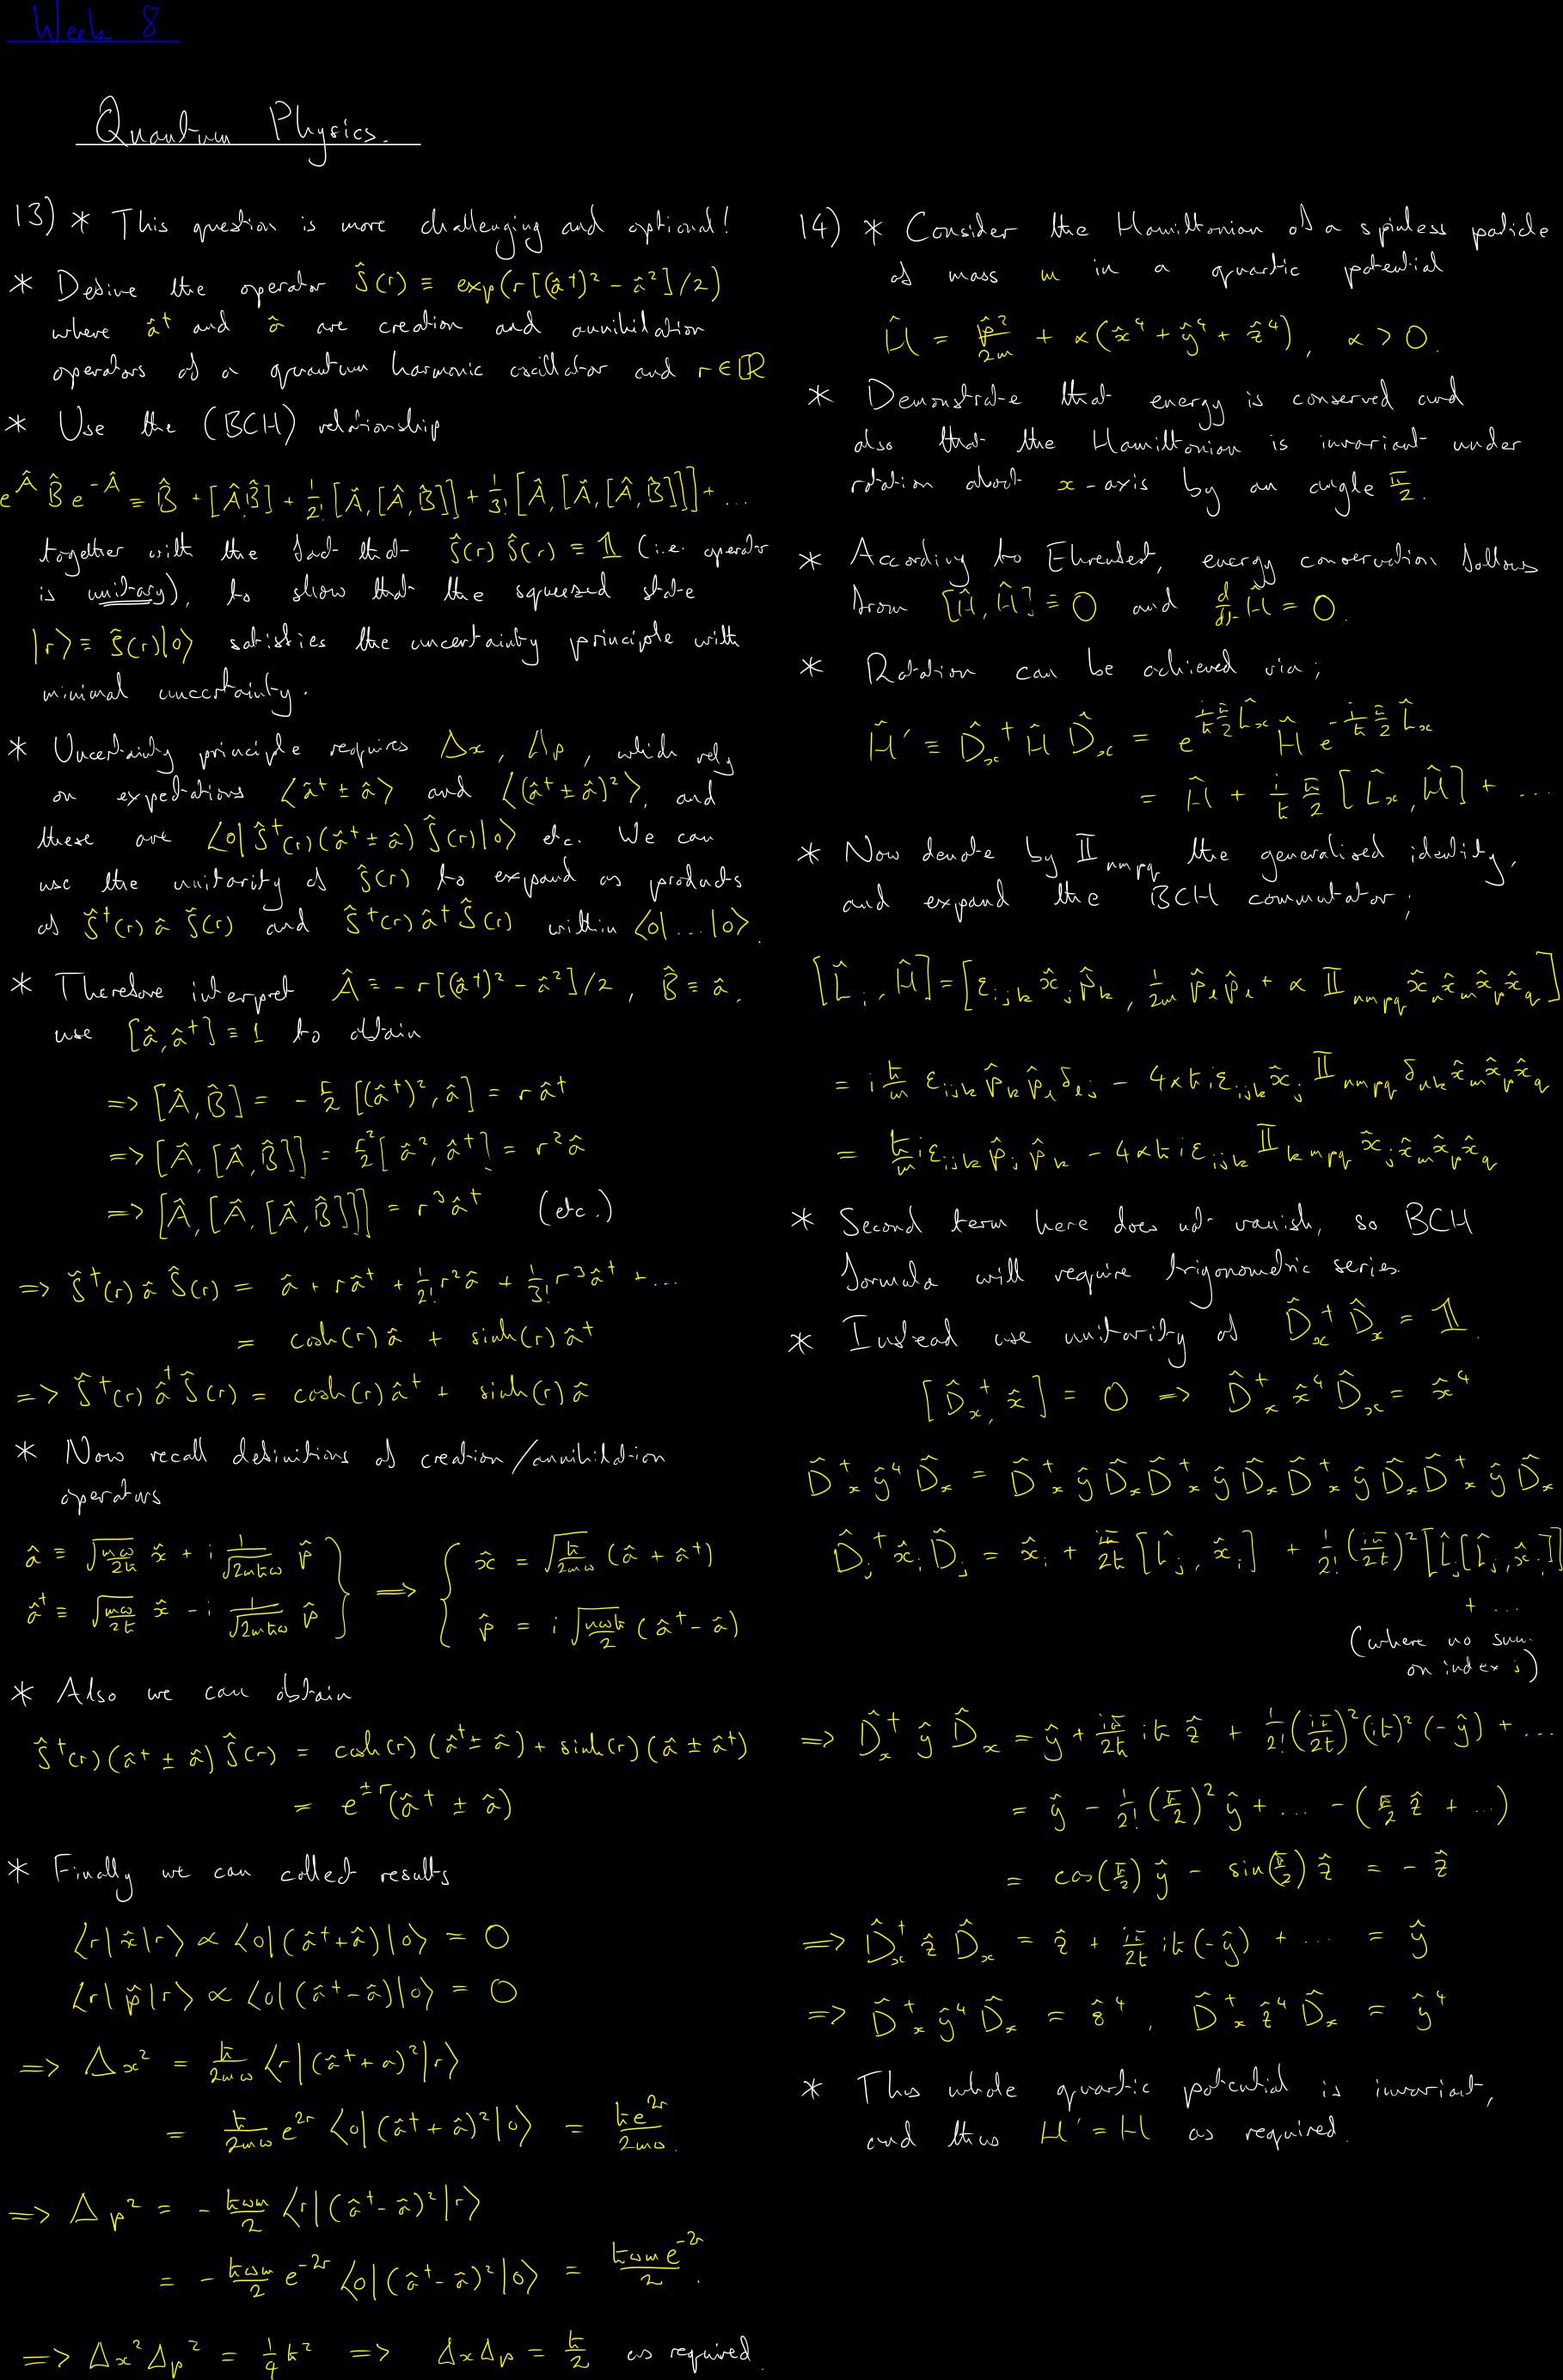 Week 8
Quantum Physics.
13) * This question is more challenging and optional!
* Define the operator Ŝ(r) ≡ exp(r[(â†)² - â²]/2)
where â† and â are creation and annihilation
operators of a quantum harmonic oscillator and r ∈ ℝ
* Use the (BCH) relationship
e^Â B̂ e^-Â = B̂ + [Â,B̂] + 1/2! [Â,[Â,B̂]] + 1/3! [Â,[Â,[Â,B̂]]] + ...
together with the fact that Ŝ(r) Ŝ(r) ≡ 𝟙 (i.e. operator
is unitary), to show that the squeezed state
|r⟩ ≡ Ŝ(r)|0⟩ satisfies the uncertainty principle with
minimal uncertainty.
* Uncertainty principle requires Δx, Δp, which rely
on expectations ⟨â† ± â⟩ and ⟨(â† ± â)²⟩, and
these are ⟨0|Ŝ†(r)(â† ± â)Ŝ(r)|0⟩ etc. We can
use the unitarity of Ŝ(r) to expand as products
of Ŝ†(r) â Ŝ(r) and Ŝ†(r) â† Ŝ(r) within ⟨0|...|0⟩.
* Therefore interpret Â ≡ - r[(â†)² - â²]/2, B̂ ≡ â,
use [â,â†] ≡ 1 to obtain
=> [Â,B̂] = - r/2 [(â†)², â] = r â†
=> [Â,[Â,B̂]] = r²/2 [â², â†] = r² â
=> [Â,[Â,[Â,B̂]]] = r³ â† (etc.)
=> Ŝ†(r) â Ŝ(r) = â + r â† + 1/2! r² â + 1/3! r³ â† + ...
= cosh(r) â + sinh(r) â†
=> Ŝ†(r) â† Ŝ(r) = cosh(r) â† + sinh(r) â
* Now recall definitions of creation/annihilation
operators
â ≡ √(mω/2ħ) x̂ + i 1/√(2mħω) p̂ } => { x̂ = √(ħ/2mω) (â + â†)
â† ≡ √(mω/2ħ) x̂ - i 1/√(2mħω) p̂ } { p̂ = i √(mωħ/2) (â† - â)
* Also we can obtain
Ŝ†(r)(â† ± â)Ŝ(r) = cosh(r)(â† ± â) + sinh(r)(â ± â†)
= e^±r (â† ± â)
* Finally we can collect results
⟨r|x̂|r⟩ ∝ ⟨0|(â† + â)|0⟩ = 0
⟨r|p̂|r⟩ ∝ ⟨0|(â† - â)|0⟩ = 0
=> Δx² = ħ/2mω ⟨r|(â† + a)²|r⟩
= ħ/2mω e^2r ⟨0|(â† + â)²|0⟩ = ħe^2r/2mω.
=> Δp² = - ħωm/2 ⟨r|(â† - â)²|r⟩
= - ħωm/2 e^-2r ⟨0|(â† - â)²|0⟩ = ħωm e^-2r/2.
=> Δx² Δp² = 1/4 ħ² => Δx Δp = ħ/2 as required.
14) * Consider the Hamiltonian of a spinless particle
of mass m in a quartic potential
Ĥ = p̂²/2m + α(x̂⁴ + ŷ⁴ + ẑ⁴), α > 0.
* Demonstrate that energy is conserved and
also that the Hamiltonian is invariant under
rotation about x-axis by an angle π/2.
* According to Ehrenfest, energy conservation follows
from [Ĥ, Ĥ] ≡ 0 and d/dt Ĥ = 0.
* Rotation can be achieved via;
Ĥ' ≡ D̂ₓ† Ĥ D̂ₓ = e^(i/ħ π/2 L̂ₓ) Ĥ e^(-i/ħ π/2 L̂ₓ)
= Ĥ + i/ħ π/2 [L̂ₓ, Ĥ] + ...
* Now denote by 𝕀_nmpq the generalised identity,
and expand the BCH commutator;
[L̂_i, Ĥ] = [ε_ijk x̂_j p̂_k, 1/2m p̂_l p̂_l + α 𝕀_nmpq x̂_n x̂_m x̂_p x̂_q]
= i ħ/m ε_ijk p̂_k p̂_l δ_lj - 4αħi ε_ijk x̂_j 𝕀_nmpq δ_nk x̂_m x̂_p x̂_q
= ħ/m i ε_ijk p̂_j p̂_k - 4αħi ε_ijk 𝕀_kmpq x̂_j x̂_m x̂_p x̂_q
* Second term here does not vanish, so BCH
formula will require trigonometric series.
* Instead use unitarity of D̂ₓ† D̂ₓ = 𝟙.
[D̂ₓ†, x̂] = 0 => D̂ₓ† x̂⁴ D̂ₓ = x̂⁴
D̂ₓ† ŷ⁴ D̂ₓ = D̂ₓ† ŷ D̂ₓ D̂ₓ† ŷ D̂ₓ D̂ₓ† ŷ D̂ₓ D̂ₓ† ŷ D̂ₓ
D̂_j† x̂_i D̂_j = x̂_i + iπ/2ħ [L̂_j, x̂_i] + 1/2! (iπ/2ħ)² [L̂_j [L̂_j, x̂_i]]
+ ...
(where no sum
on index j)
=> D̂ₓ† ŷ D̂ₓ = ŷ + iπ/2ħ iħ ẑ + 1/2! (iπ/2ħ)² (iħ)² (-ŷ) + ...
= ŷ - 1/2! (π/2)² ŷ + ... - (π/2 ẑ + ...)
= cos(π/2) ŷ - sin(π/2) ẑ = - ẑ
=> D̂ₓ† ẑ D̂ₓ = ẑ + iπ/2ħ iħ (-ŷ) + ... = ŷ
=> D̂ₓ† ŷ⁴ D̂ₓ = ẑ⁴, D̂ₓ† ẑ⁴ D̂ₓ = ŷ⁴
* Thus whole quartic potential is invariant,
and thus H' = H as required.